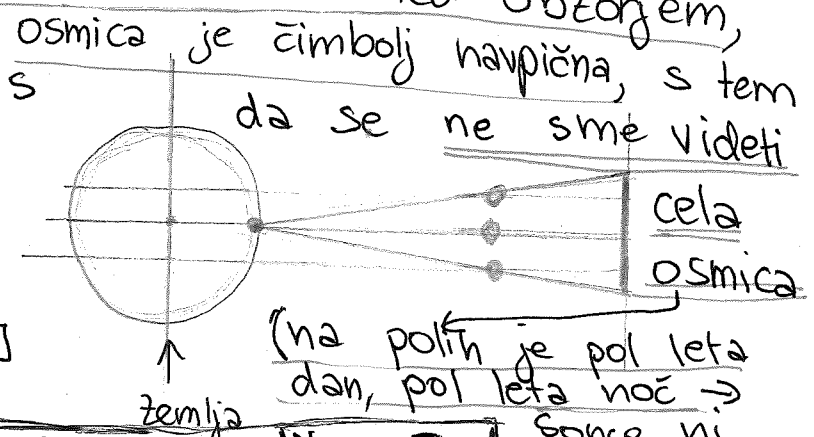 obzorjem,
osmica je čimbolj navpična, s tem
S
da se ne sme videti
cela
osmica
(na polih je pol leta
dan, pol leta noč →
zemlja
Sonce ni